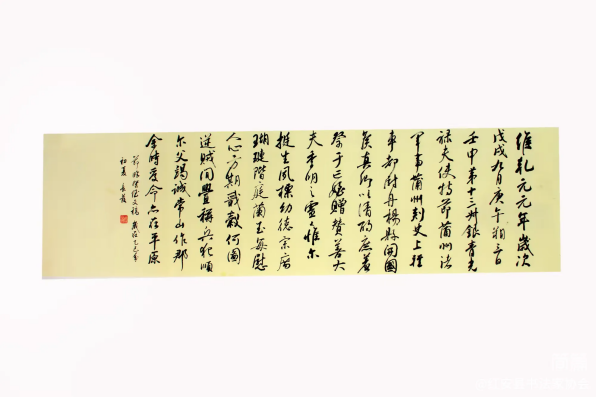 維乾元元年歲次
戊戌九月庚午朔三日
壬申第十三叔銀青光
祿夫使持節蒲州諸
軍事蒲州刺史上輕
車都尉丹楊縣開國
侯真卿以清酌庶羞
祭于亡姪贈贊善大
夫季明之靈惟尔
挺生夙標幼德宗廟
瑚璉階庭蘭玉每慰
人心方期戩穀何圖
逆賊間釁稱兵犯順
尔父竭誠常山作郡
余時受命亦在平原
節臨祭侄文稿 歲在乙巳年
初夏